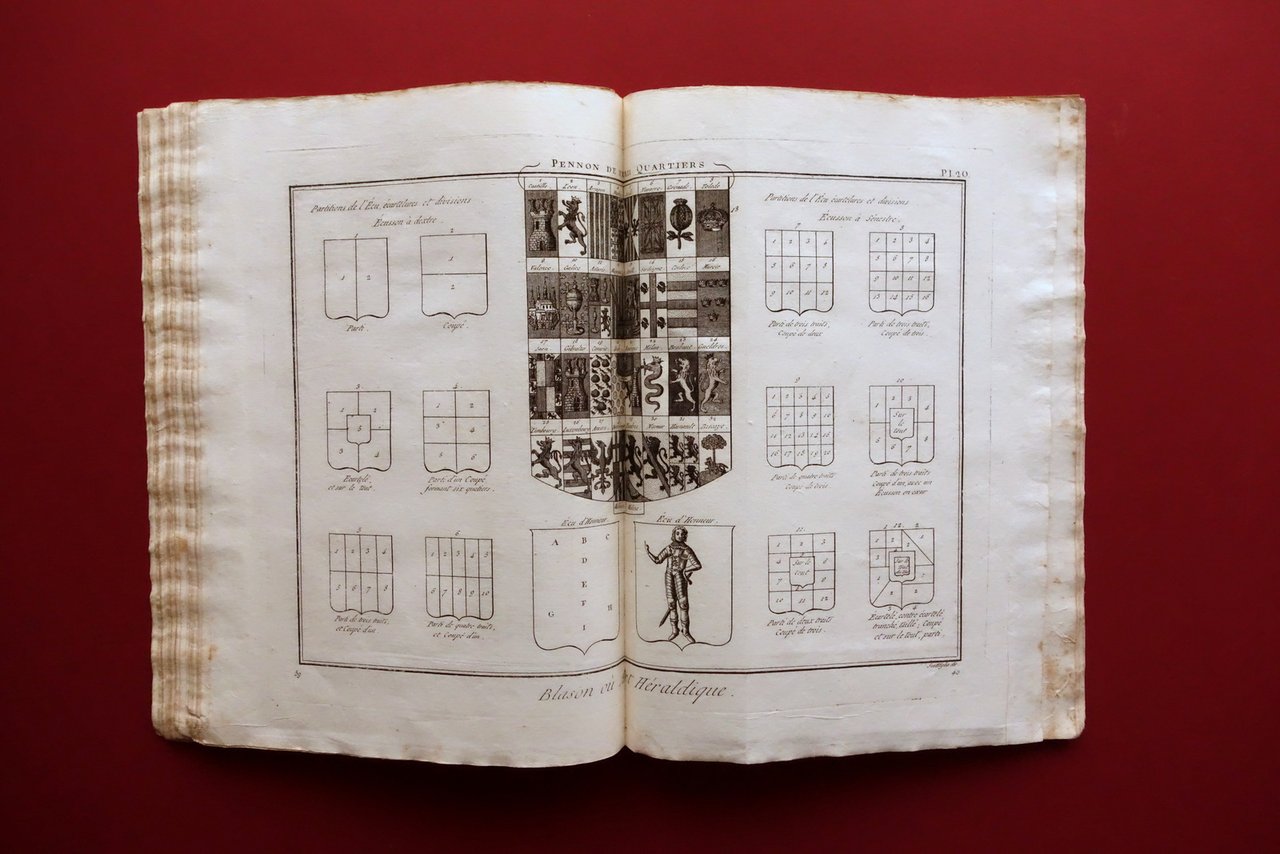 PENNON DE QUARTIERS
Pl. 20
Partitions de l'Ecu, écartelures et divisions
Ecusson à dextre.
1
1 2
Parti
2
1
2
Coupé.
3.
1 2
5
3 4
Ecartelé,
et sur le tout.
4
1 2
3 4
5 6
Parti d'un Coupé
formant six quartiers.
5
1 2 3 4
5 6 7 8
Parti de trois traits
et Coupé d'un
6
1 2 3 4 5
6 7 8 9 10
Parti de quatre traits
et Coupé d'un.
1 2 6 7 8
Castille Leon Navarre Grenade Tolede
Valence Galice Sardaigne Cordoue Murcie
17 24
Jaen Gibraltar Corse Milan Brabant Gueldres
Limbourg Luxembourg Namur Hainault Biscaye
Ecu d'Honneur
A B C
D
E
G F H
I
Ecu d'Honneur.
Partitions de l'Ecu écartelures et divisions
Ecusson à Sénestre.
7
1 2 3 4
5 6 7 8
9 10 11 12
Parti de trois traits,
Coupé de deux
8
1 2 3 4
5 6 7 8
9 10 11 12
13 14 15 16
Parti de trois traits,
Coupé de trois.
9
1 2 3 4 5
6 7 8 9 10
11 12 13 14 15
16 17 18 19 20
Parti de quatre traits
Coupé de trois.
10
1 2 3 4
Sur
le
tout
5 6 7 8
Parti de trois traits
coupé d'un, avec un
Ecusson en cœur
11
1 2 3
4 Sur le 6
7 tout 9
10 11 12
Parti de deux traits
Coupé de trois.
12
Sur le
Ecartelé, contre écartelé,
tranché, taillé, Coupé
et sur le tout, parti.
39
40
Blason ou Art Héraldique.